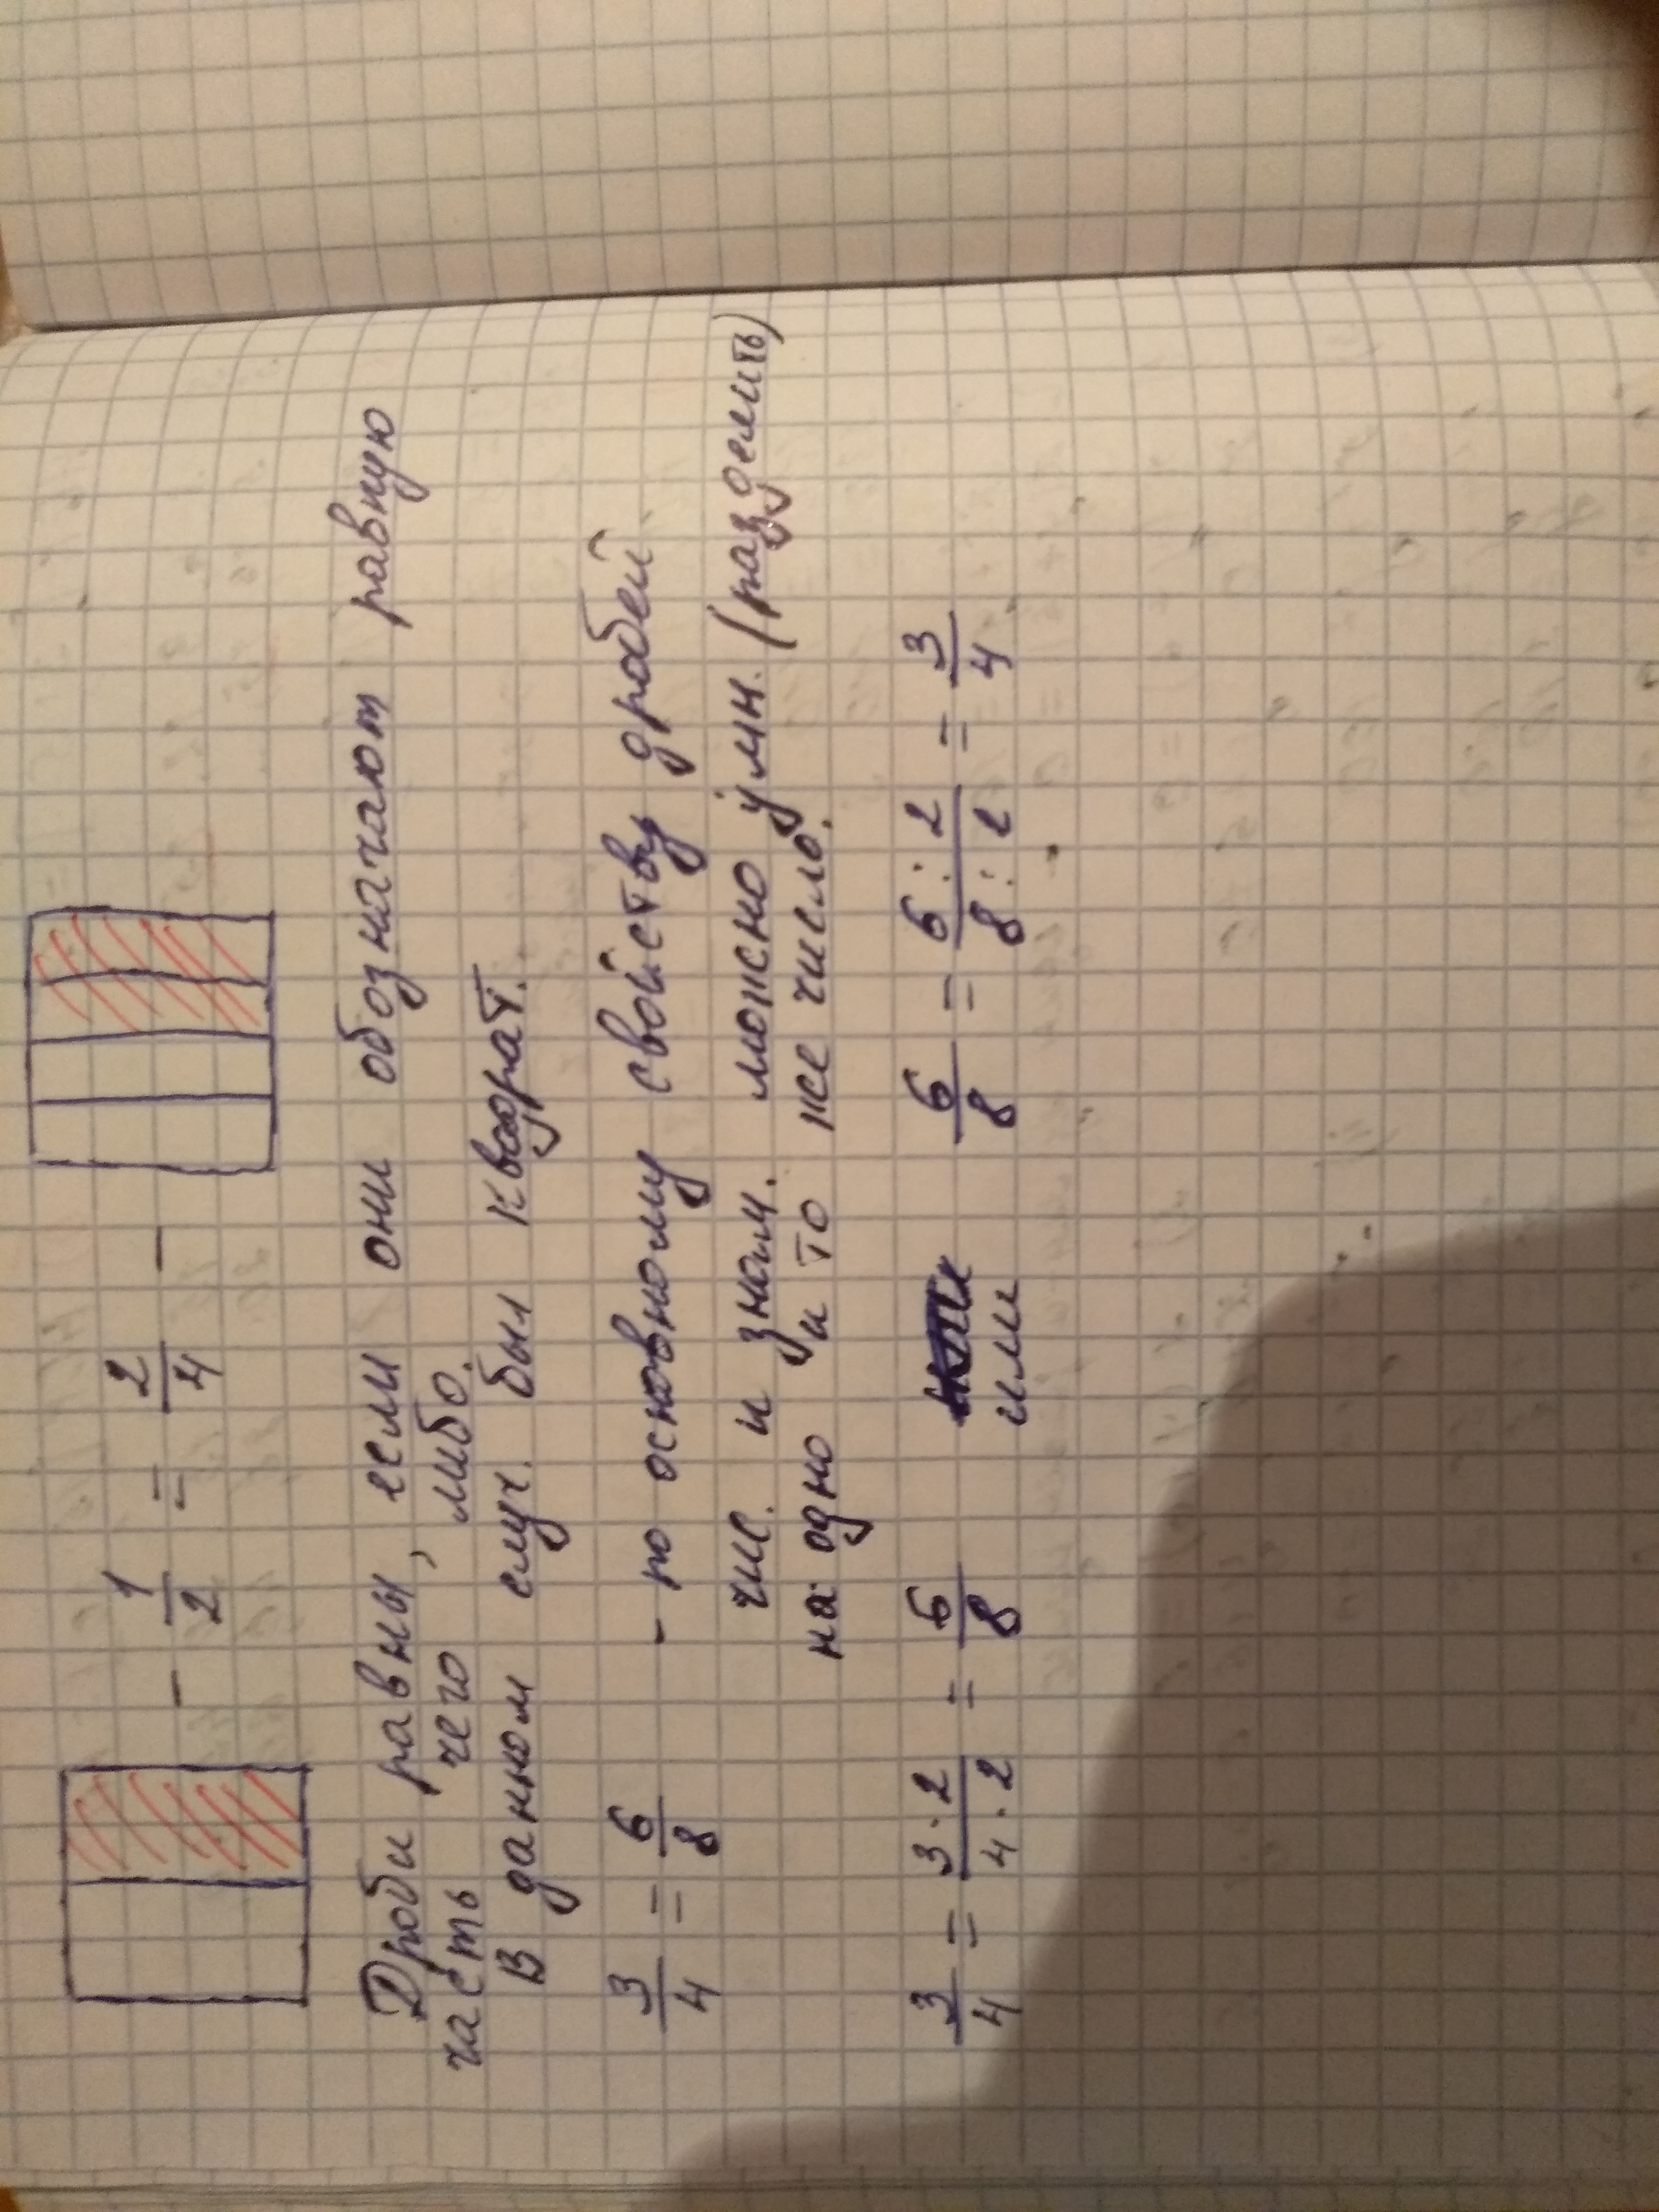 - 1/2 = 2/4 -
Дроби равны, если они обозначают равную
часть чего либо.
В данном случ. был квадрат.
3/4 = 6/8 - по основному свойству дробей
чис. и знам. можно умн. (разделить)
на одно и то же число.
3/4 = 3·2/4·2 = 6/8 или 6/8 = 6:2/8:2 = 3/4